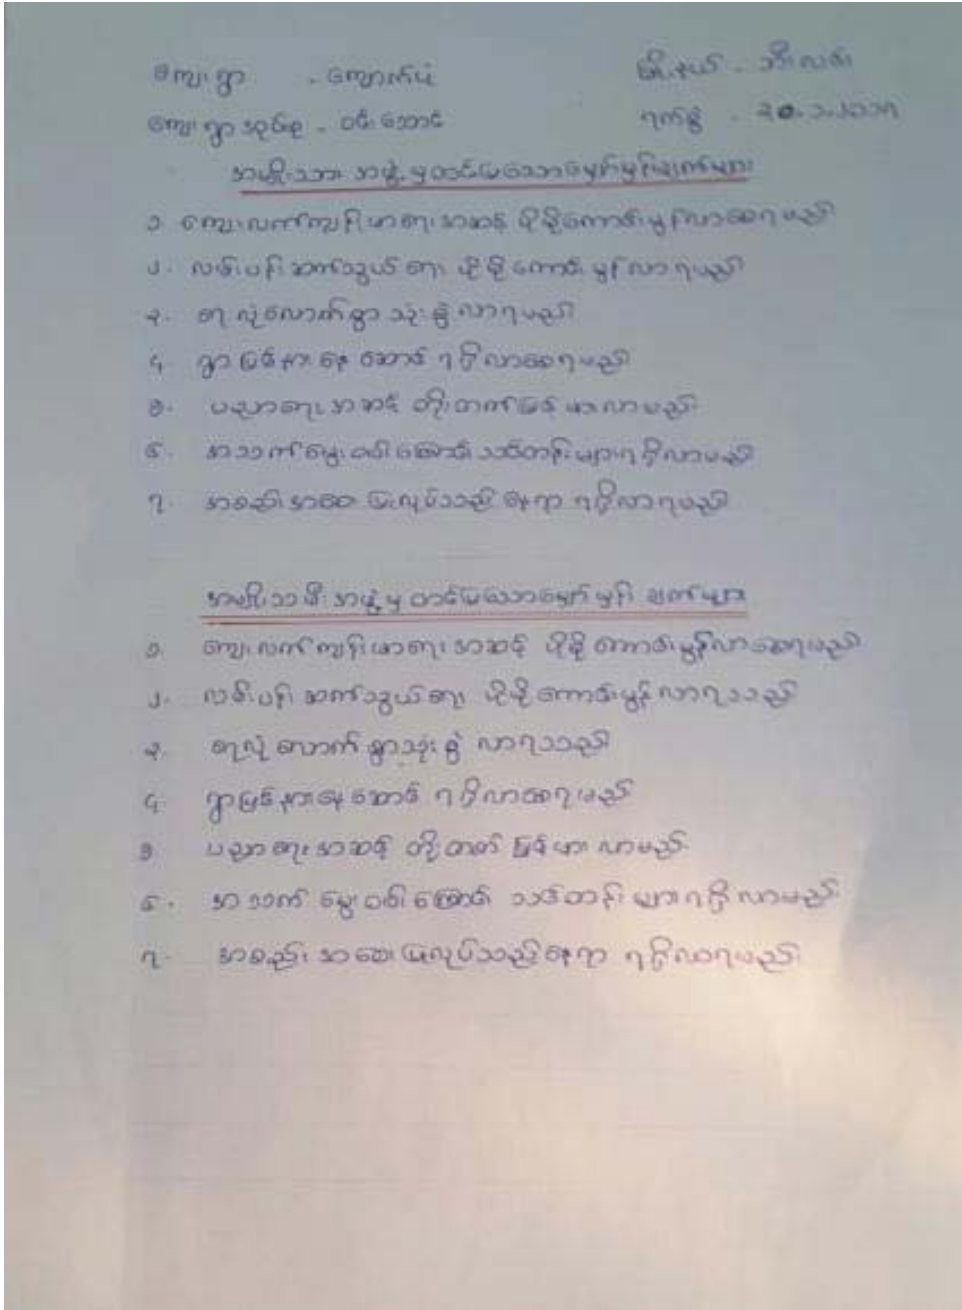 ကျေးရွာ - ကျောက်ပုံ မြို့နယ် - သီးလင်း
ကျေးရွာအုပ်စု - ဝင်းအောင် ရက်စွဲ - ၃၀.၁.၂၀၁၇
အမျိုးသား အဖွဲ့မှတင်ပြသောမျှော်မှန်းချက်များ
၁. ကျေးလက်ကျန်းမာရေးအဆင့် ပိုမိုကောင်းမွန်လာစေရမည်
၂. လမ်းပန်းဆက်သွယ်ရေး ပိုမိုကောင်းမွန်လာရမည်
၃. ရေလုံလောက်စွာသုံးစွဲလာရမည်
၄. ရွာမြင့်နားနေဆောင် ရရှိလာစေရမည်
၅. ပညာရေးအဆင့် တိုးတက်မြင့်မားလာမည်
၆. အသက်မွေးဝမ်းကြောင်း သင်တန်းများရရှိလာမည်
၇. အစည်းအဝေးပြုလုပ်သည့်နေရာ ရရှိလာရမည်
အမျိုးသမီးအဖွဲ့မှ တင်ပြသောမျှော်မှန်းချက်များ
၁. ကျေးလက်ကျန်းမာရေးအဆင့် ပိုမိုကောင်းမွန်လာစေရမည်
၂. လမ်းပန်းဆက်သွယ်ရေး ပိုမိုကောင်းမွန်လာရသည်
၃. ရေလုံလောက်စွာသုံးစွဲလာရသည်
၄. ရွာမြင့်နားနေဆောင် ရရှိလာစေရမည်
၅ ပညာရေးအဆင့် တိုးတတ်မြင့်မားလာမည်
၆. အသက်မွေးဝမ်းကြောင်း သင်တန်းများရရှိလာမည်
၇. အစည်းအဝေးပြုလုပ်သည့်နေရာ ရရှိလာရမည်